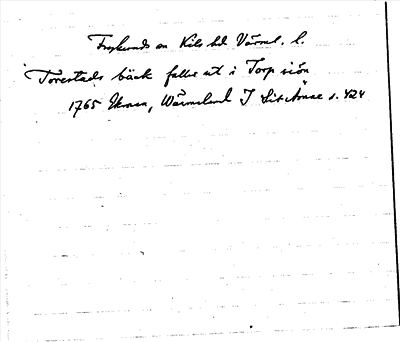 Frykerud sn Kils hd Värml. l.
Torestads bäck faller ut i Torp siön
1765 Ekman, Wärmeland I Lit. s. 424